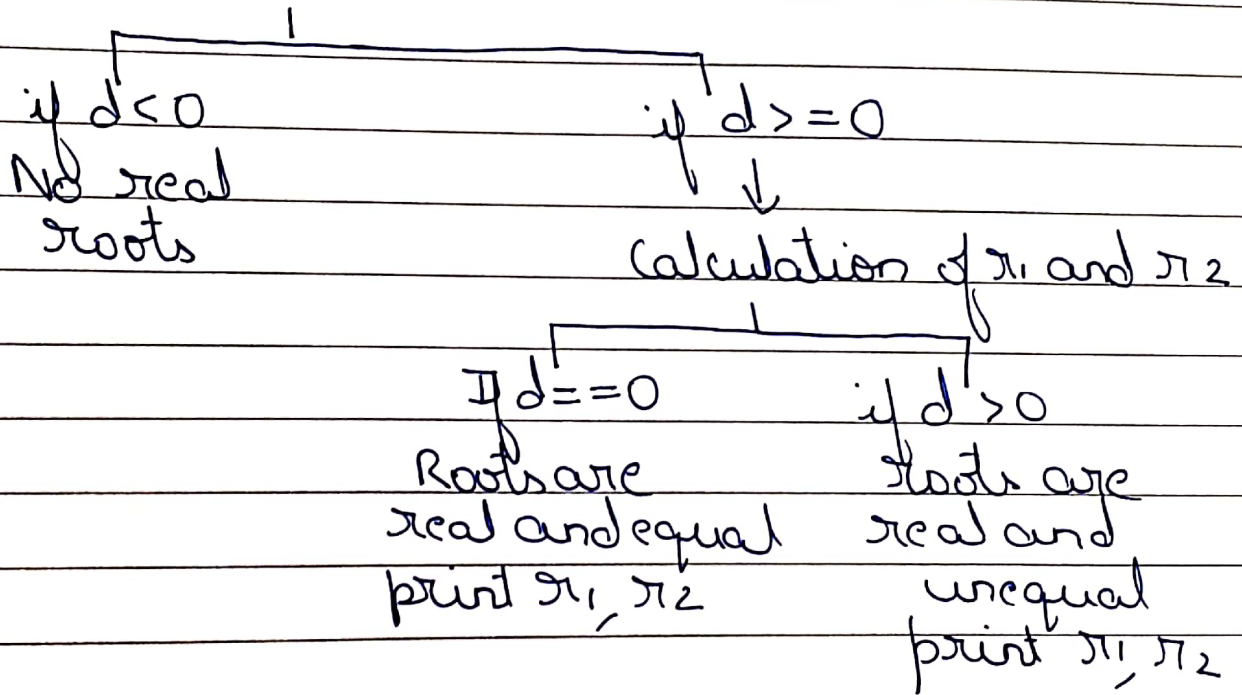 if d<0
No real
roots
if d>=0
↓
Calculation of r1 and r2
If d==0
Roots are
real and equal
print r1, r2
if d>0
Roots are
real and
unequal
print r1, r2